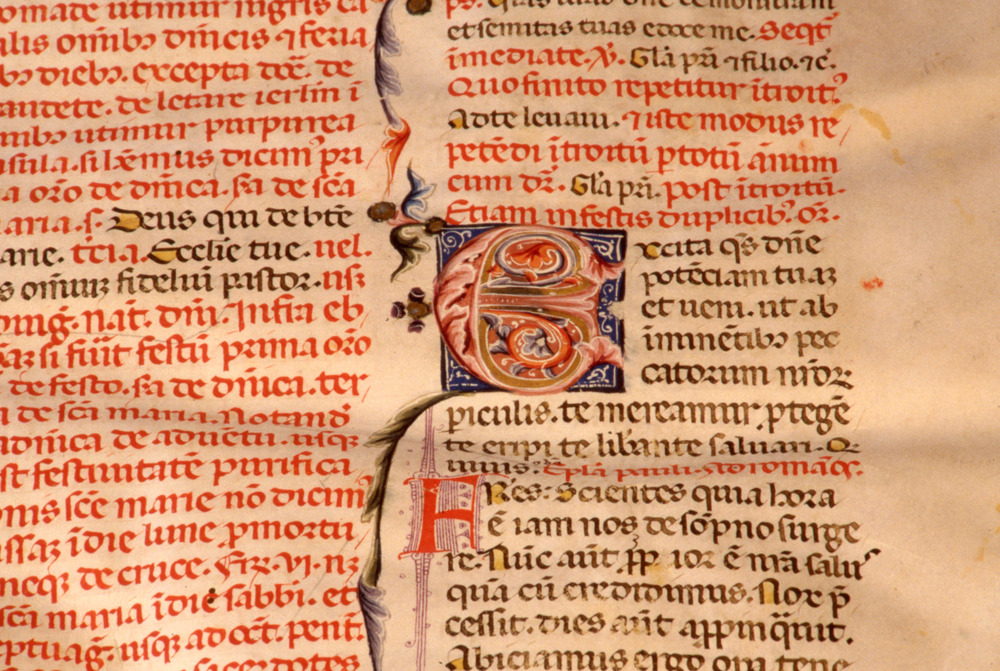 omade utimur nigris ca
alis omibꝫ dnicis ⁊ feria
bꝫ diebꝫ. excepta dce. de
audete. de letare ierlm i
nibꝫ utimur purpurea
asula. silemus dicim pri
a oro de dnica. sa de sca
aria. s. Deus qui de bte
arie. tcia. Ecclie tue. uel.
s omiuꝫ fideliu pastor. nisi
omig. nat. dni. Infra eb
si fiut festu prima oro
de festo. sa de dnica. ter
a de sca maria. Notand
adnica de aduetu. usqꝫ
st festiuitate purifica
onis sce marie no dicim
issaꝫ idie lune p mortu
neqꝫ de cruce. vi. nꝫ
sca maria idie sabbi. et
usqꝫ ad oct. pent.
sacerdotes
ps. Uias tuas dne demonstra m
et semitas tuas edoce me. Seqt
imediate. V. Gla pri ⁊ filio. ⁊c.
Quo finito repetitur itroit.
Ad te leuaui. ⁊ iste modus re
petedi itroitu p totu annum
cum dr. Gla pri. post itroitu.
Etiam in festis duplicibꝫ. or.
Excita qs dne
potectam tuaꝫ
et ueni. ut ab
imminetibꝫ pec
catorum nror
piculis. te mereamur ptegete
te eripi te liberante saluari. Q
uiuis. Epla pauli. ad romaos.
Fres. Scientes quia hora
e iam nos de sopno surge
re. Nuc aut pp ior e nra salu
qua cu credidimus. Nox p
cessit. dies aut appinqut.
Abiciamus ergo opa tene